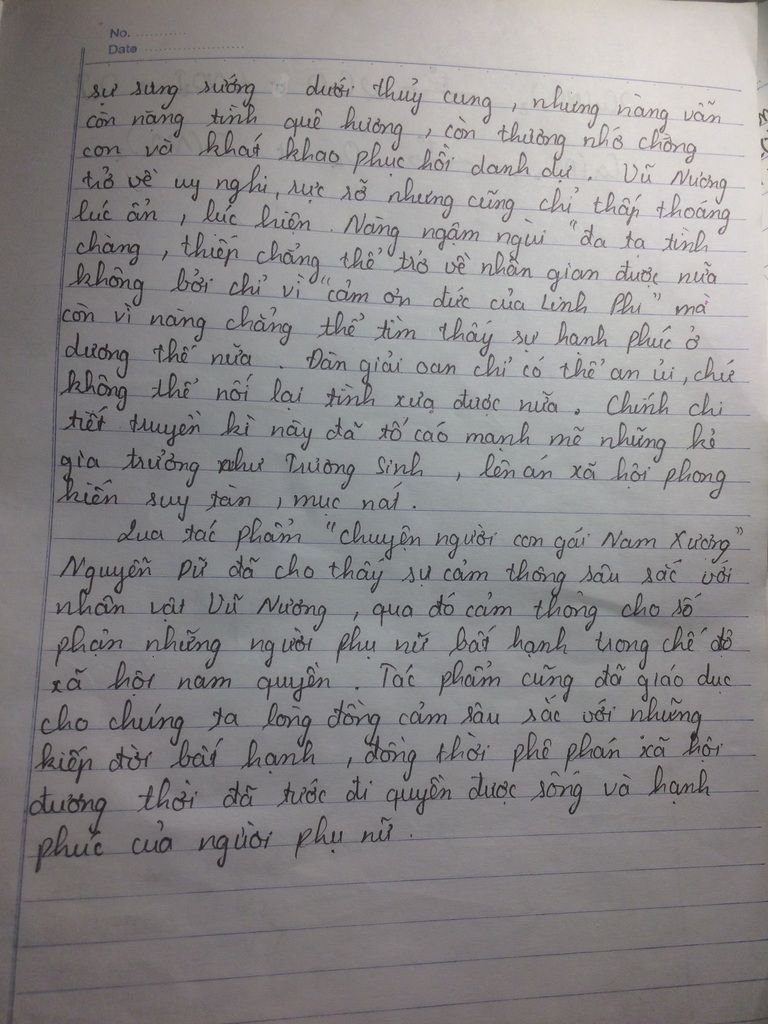 No. ............
Date ........................
sự sung sướng dưới thuỷ cung, nhưng nàng vẫn
còn nặng tình quê hương, còn thương nhớ chồng
con và khát khao phục hồi danh dự. Vũ Nương
trở về uy nghi, rực rỡ nhưng cũng chỉ thấp thoáng
lúc ẩn, lúc hiện. Nàng ngậm ngùi "đa tạ tình
chàng, thiếp chẳng thể trở về nhân gian được nữa
không bởi chỉ vì "cảm ơn đức của Linh Phi" mà
còn vì nàng chẳng thể tìm thấy sự hạnh phúc ở
dương thế nữa. Đàn giải oan chỉ có thể an ủi, chứ
không thể nối lại tình xưa được nữa. Chính chi
tiết truyền kì này đã tố cáo mạnh mẽ những kẻ
gia trưởng như Trương Sinh, lên án xã hội phong
kiến suy tàn, mục nát.
Qua tác phẩm "chuyện người con gái Nam Xương"
Nguyễn Dữ đã cho thấy sự cảm thông sâu sắc với
nhân vật Vũ Nương, qua đó cảm thông cho số
phận những người phụ nữ bất hạnh trong chế độ
xã hội nam quyền. Tác phẩm cũng đã giáo dục
cho chúng ta lòng đồng cảm sâu sắc với những
kiếp đời bất hạnh, đồng thời phê phán xã hội
đương thời đã tước đi quyền được sống và hạnh
phúc của người phụ nữ.